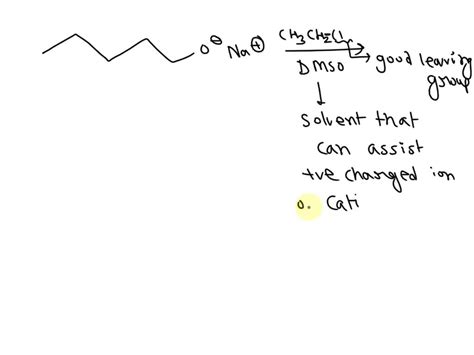 CH3CH2Cl
O⊖ Na⊕
DMSO
good leaving
group
solvent that
can assist
+ve changed ion
o. Cati